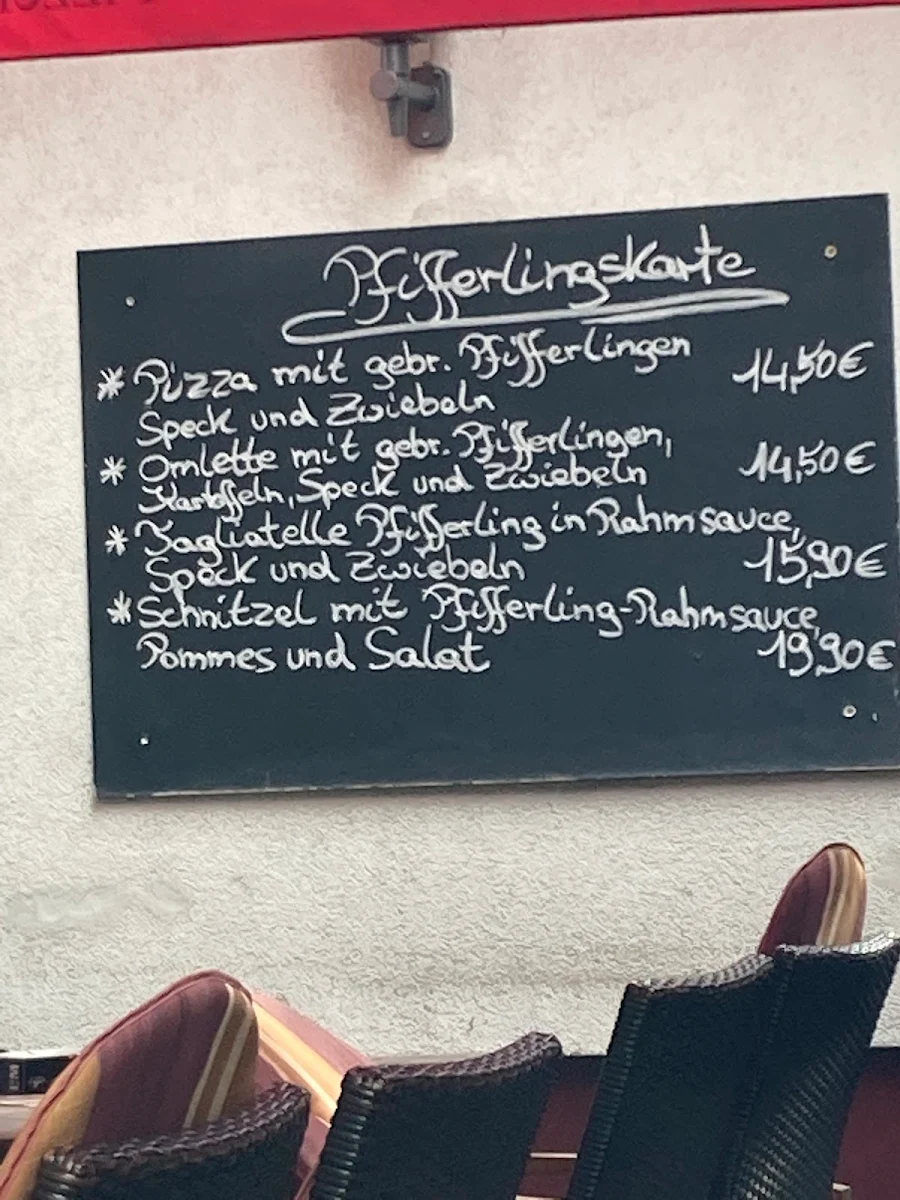 Pfifferlingskarte
* Pizza mit gebr. Pfifferlingen 14,50€
Speck und Zwiebeln
* Omlette mit gebr. Pfifferlingen, 14,50€
Kartoffeln, Speck und Zwiebeln
* Tagliatelle Pfifferling in Rahmsauce,
Speck und Zwiebeln 15,90€
* Schnitzel mit Pfifferling-Rahmsauce,
Pommes und Salat 19,90€